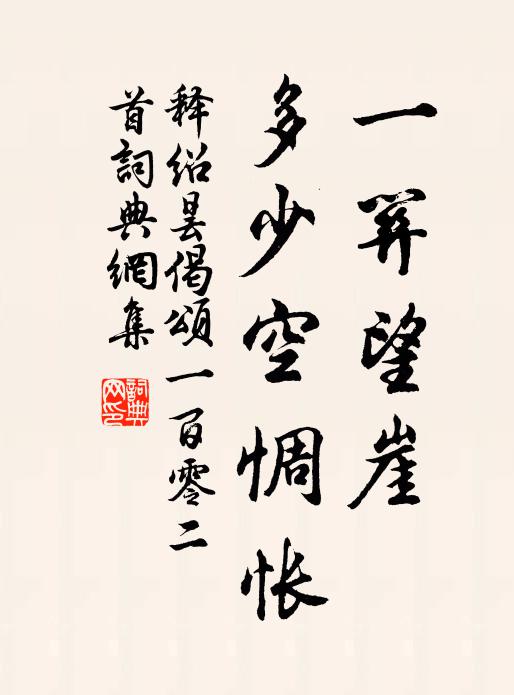 一望崖
多少空惆怅
释绍昙偈頌一百零二
首詞典網集
詞典
网印